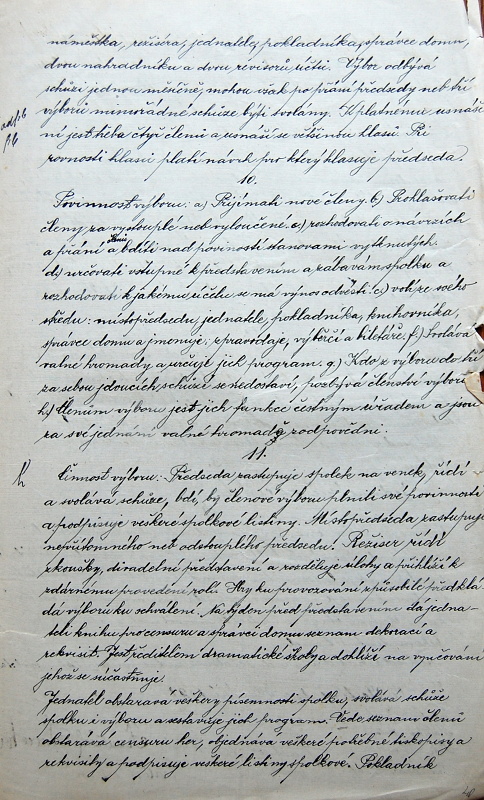 náměstka, režiséra, jednatele, pokladníka, správce domu,
dvou nahradníku a dvou revisorů účtů. Výbor odbývá
schůzi jednou měsíčně, mohou však po přání předsedy neb tří
výborů mimořádné schůze býti svolány. K platnému usnáše
ní jest třeba čtyř členů a usnáší se většinou hlasů. Při
rovnosti hlasů platí návrh pro který hlasuje předseda.
10.
Povinnost výboru: a.) Přijímati nové členy. b.) Prohlašovati
členy za vystouplé neb vyloučené. c.) rozhodovati o návrzích
a přání členů a bdíti nad povinností stanovami vytknutých.
d.) určovati vstupné k představením a zábavám spolku a
rozhodovati k jakému účelu se má výnos odvésti. e.) volí ze svého
středu: místopředsedu, jednatele, pokladníka, knihovníka,
správce domu a jmenuje: zpravodaje, výběrčí a biletáře. f.) Svolává
valné hromady a určuje jich program. g.) Kdo z výboru do tří
za sebou jdoucích schůzí se nedostaví, pozbývá členství výboru
h.) Členům výboru jest jich funkce čestným úřadem a jsou
za své jednání valné hromadě zodpovědni.
11.
Činnost výboru: Předseda zastupuje spolek na venek, řídí
a svolává schůze, bdí, by členové výboru plnili své povinnosti
a podpisuje veškeré spolkové listiny. Místopředseda zastupuje
nepřítomného neb odstouplého předsedu. Režiser řídí
zkoušky, divadelní představení a rozděluje úlohy a přihlíží k
zdárnému provedení rolí. Hry ku provozování způsobilé předklá
dá výboru ku schválení. Na týden před představením dá jedna-
teli knihu pro censuru a správci domu seznam dekorací a
rekvisit. Jest ředitelem dramatické školy a dohlíží na vyučování
jehož se súčastňuje.
Jednatel obstarává veškery písemnosti spolku, svolává schůze
spolku i výboru a sestavuje jich program. Vede seznam členů
obstarává censuru her, objednává veškeré potřebné tiskopisy a
rekvisity a podpisuje veškeré listiny spolkové. Pokladník